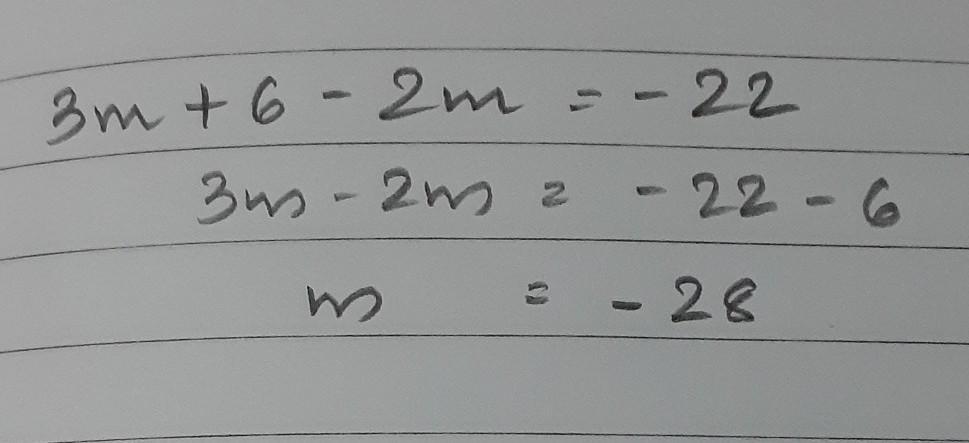 3m + 6 - 2m = - 22
3m - 2m = - 22 - 6
m = - 28